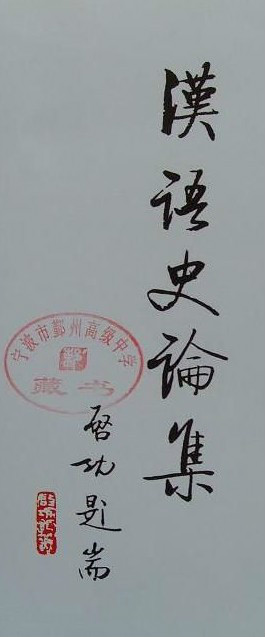 漢語史論集
啓功題耑
宁波市鄞州高级中学
藏书